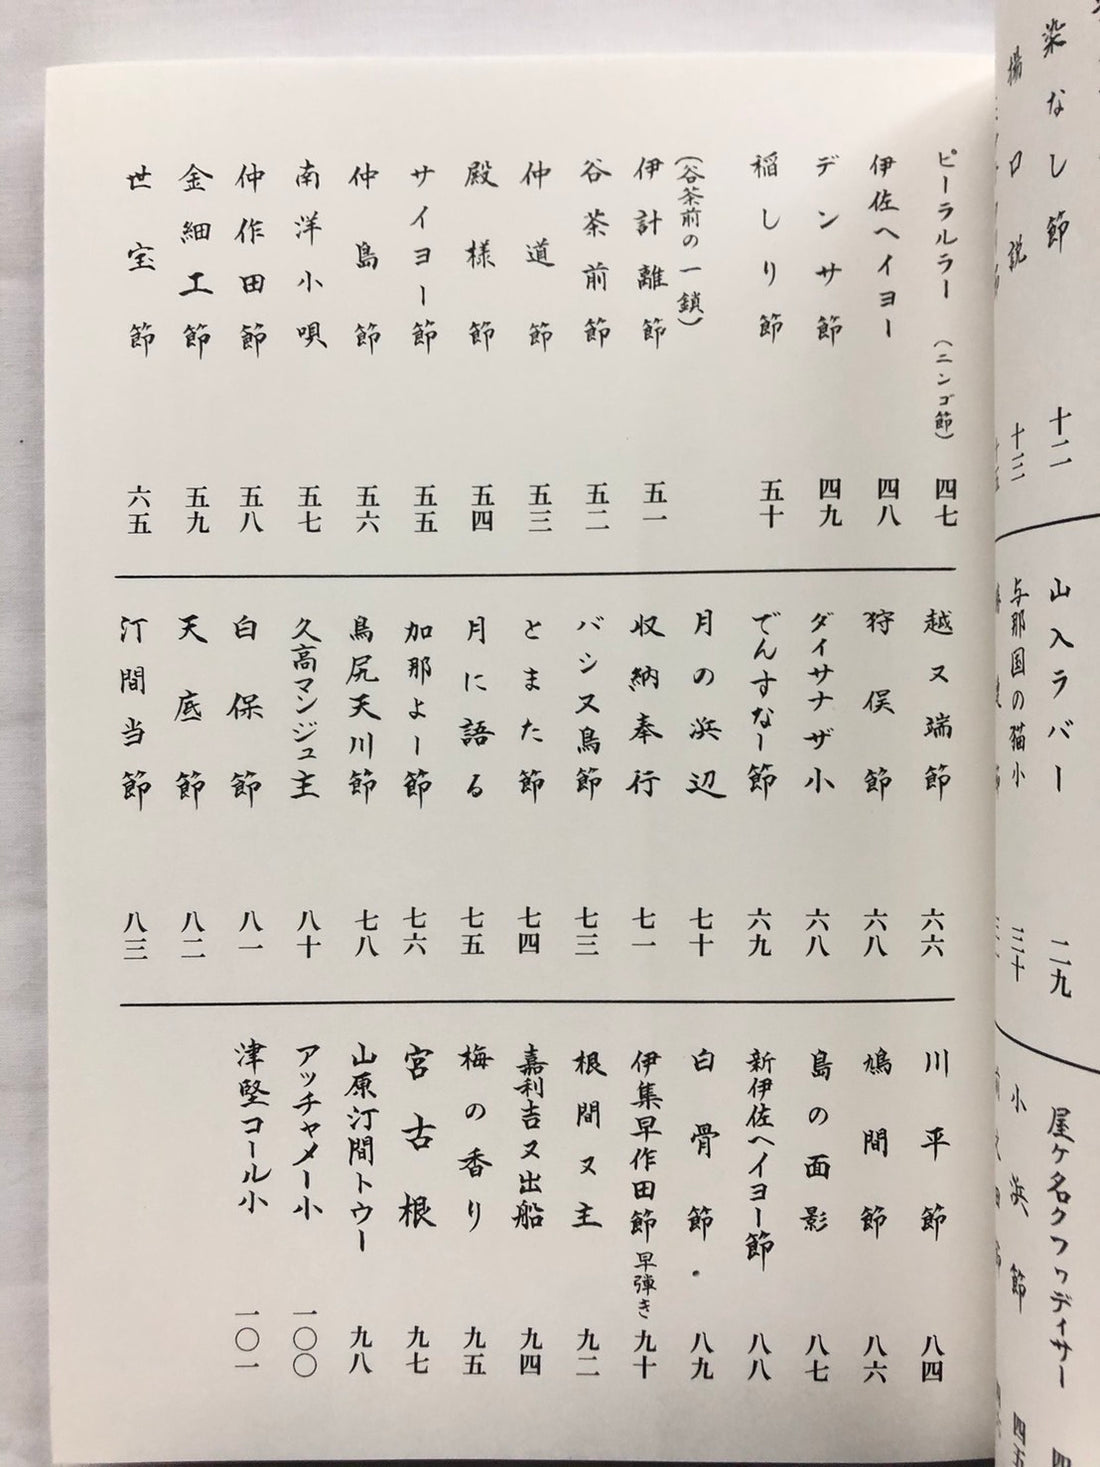 染なし節 十二
口説 十三
山入ラバー 二九
与那国の猫小 三十
屋ヶ名クワディサー
小浜節 四五
ピーラルラー(ニンゴ節) 四七
伊佐ヘイヨー 四八
デンサ節 四九
稲しり節 五十
(谷茶前の一鎖)
伊計離節 五一
谷茶前節 五二
仲道節 五三
殿様節 五四
サイヨー節 五五
仲島節 五六
南洋小唄 五七
仲作田節 五八
金細工節 五九
世宝節 六五
越ヌ端節 六六
狩俣節 六八
ダイサナザ小 六八
でんすなー節 六九
月の浜辺 七十
収納奉行 七一
バシヌ鳥節 七三
とまた節 七四
月に語る 七五
加那よー節 七六
島尻天川節 七八
久高マンジュ主 八十
白保節 八一
天底節 八二
汀間当節 八三
川平節 八四
鳩間節 八六
島の面影 八七
新伊佐ヘイヨー節 八八
白骨節 八九
伊集早作田節 早弾き 九十
根間ヌ主 九二
嘉利吉ヌ出船 九四
梅の香り 九五
宮古根 九七
山原汀間トウー 九八
アッチャメー小 一〇〇
津堅コール小 一〇一